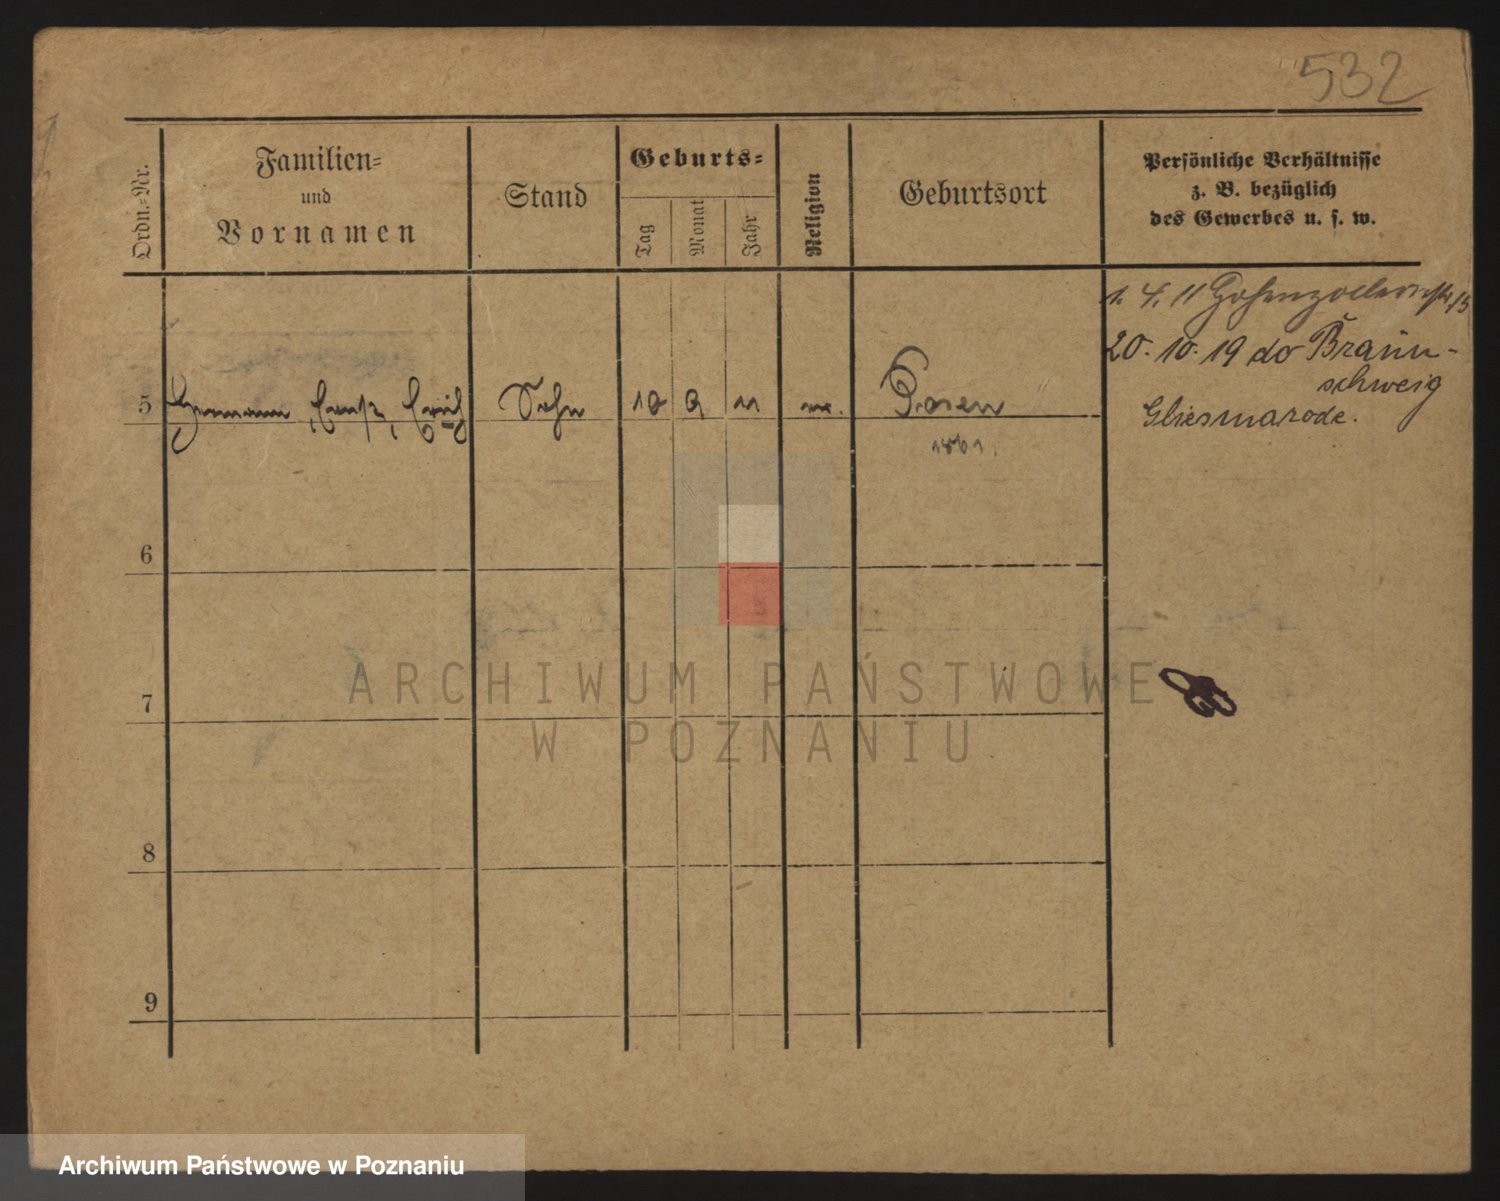 532
Ordn.-Nr.
Familien-
und
Vornamen
Stand
Geburts-
Tag
Monat
Jahr
Religion
Geburtsort
Persönliche Verhältnisse
z. B. bezüglich
des Gewerbes u. s. w.
1. 4. 11 Hohenzollernstr. 15
20. 10. 19 do Braun-
schweig
Gliesmarode.
5 Hermann, Ernst, Erich Sohn 10 9 11 Posen
1861.
6
7
8
9
ARCHIWUM PAŃSTWOWE
W POZNANIU
Archiwum Państwowe w Poznaniu